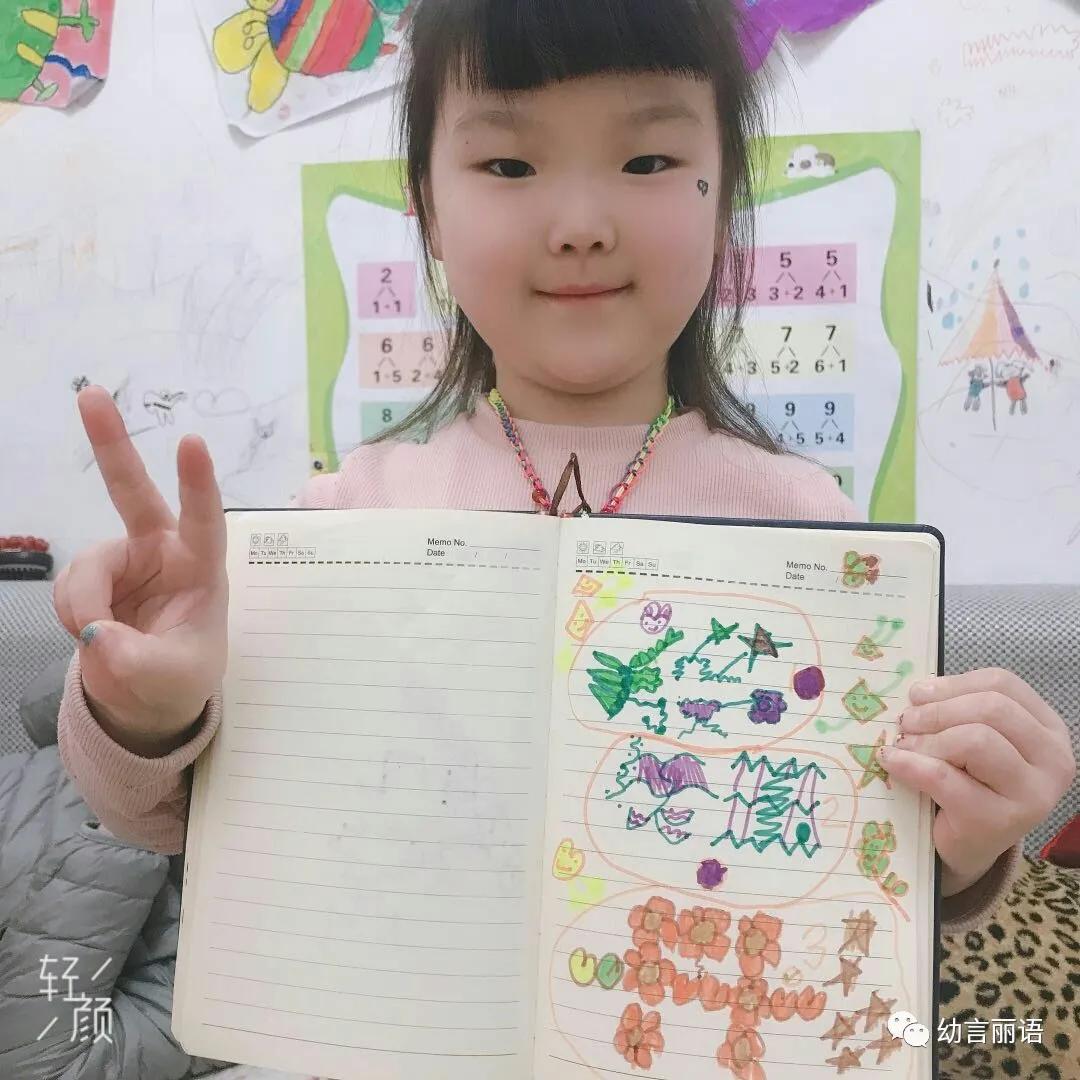 2
1+1
5
5
3
3+2
4+1
6
6
1+5
2+4
7
7
4+3
5+2
6+1
8
9
9
4+5
5+4
Memo No.
Date / /
Mo Tu We Th Fr Sa Su
Memo No.
Date /
Mo Tu We Th Fr Sa Su
2
3
轻
颜
幼言丽语